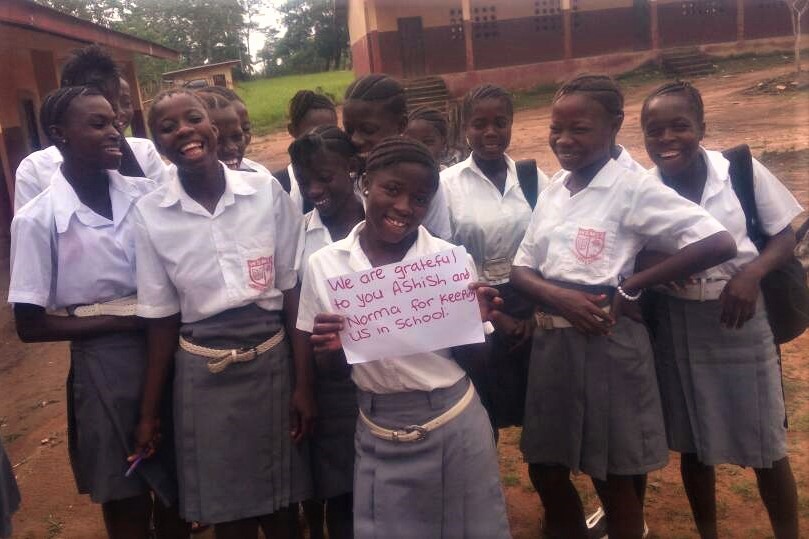 We are grateful
to you AShiSh and
Norma for keeping
US in School.